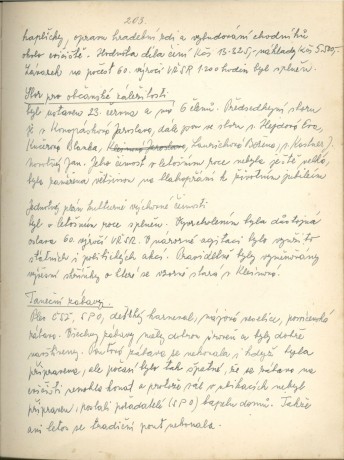 203.
kapličky, oprava hradební zdi a vybudování chodníků
okolo cvičiště. Hodnota díla činí Kčs 13.325,- náklady Kčs 5.520,-
Závazek na počest 60. výročí VŘSR 1200 hodin byl splněn.
Sbor pro občanské záležitosti
byl ustaven 23. června a má 6 členů. Předsedkyní sboru
je s. Konopásková Jaroslava, dále jsou ve sboru s. Hejdová Eva,
Kučerová Blanka, Klesinová Jaroslava, Lavrichová Božena, s. Kintner,
novotný Jan. Jeho činnost v letošním roce nebyla ještě velká,
byla zaměřena většinou na blahopřání k životním jubileím
Jednotný plán kulturně výchovné činnosti
byl v letošním roce splněn. Vyvrcholením byla důstojná
oslava 60. výročí VŘSR. V názorné agitaci bylo využito
státních i politických akcí. Pravidelně byly vyměňovány
vývěsní skříňky o které se vzorně stará s. Klesinová.
Taneční zábavy.
Ples ČSŽ, SPO, dětský karneval, májová veselice, posvícenská
zábava. Všechny zábavy měly dobrou úroveň a byly dobře
navštíveny. Pouťová zábava se nekonala i když byla
připravena, ale počasí bylo tak špatné, že se zábava na
cvičišti nemohla konat a protože sál v
připraven, poslali pořadatelé (SPO) kapelu domů. Takže
ani letos se tradiční pouť nekonala.